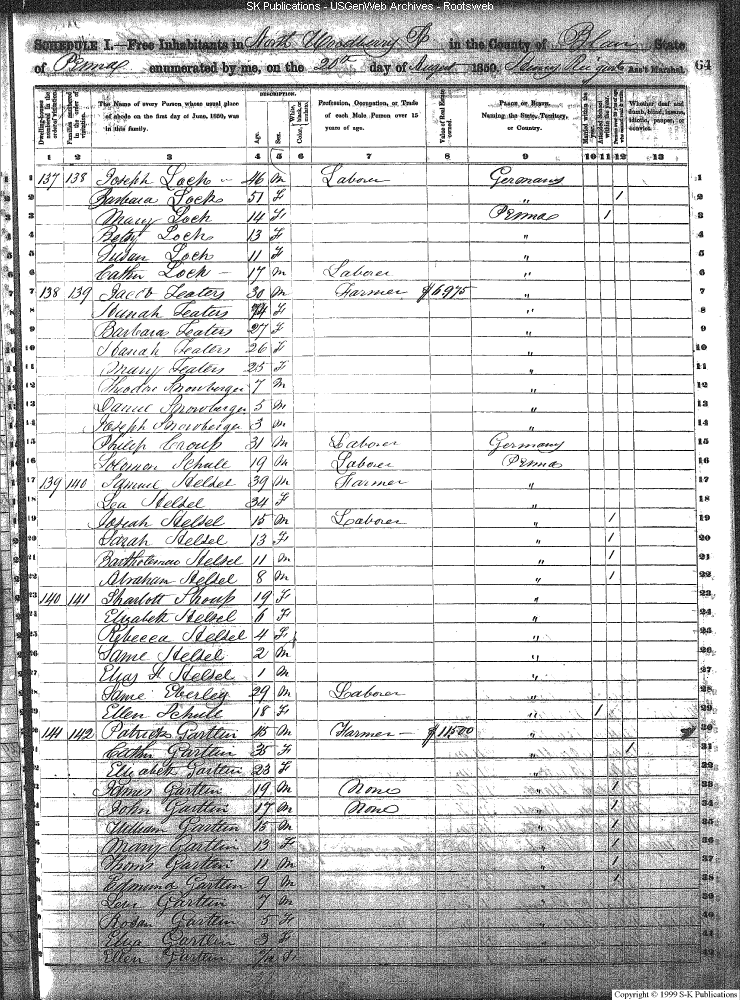 SK Publications - USGenWeb Archives - Rootsweb
SCHEDULE I.—Free Inhabitants in North Woodberry in the County of Blair State
of Penna enumerated by me, on the 20th day of August 1850. Ass't Marshal. 64
Dwelling-houses numbered in the order of visitation.
Families numbered in the order of visitation.
The Name of every Person whose usual place of abode on the first day of June, 1850, was in this family.
DESCRIPTION.
Age.
Sex.
Color
Profession, Occupation, or Trade of each Male Person over 15 years of age.
Value of Real Estate owned.
PLACE OF BIRTH. Naming the State, Territory, or Country.
Married within the year.
Attended School within the year.
Whether deaf and dumb, blind, insane, idiotic, pauper, or convict.
1 2 3 4 5 6 7 8 9 10 11 12 13
1 137 138 Joseph Lock 46 m Laborer Germany 1
2 Barbara Lock 51 F " / 2
3 Mary Lock 14 F Penna / 3
4 Betsy Lock 13 F " 4
5 Susan Lock 11 F " 5
6 Cathn Lock — 17 m Laborer " 6
7 138 139 Jacob Teaters 30 m Farmer $6975 " 7
8 Hanah Teaters 74 F " 8
9 Barbara Teaters 27 F " 9
10 Hanah Teaters 26 F " 10
11 Mary Teaters 25 F " 11
12 Theodore Snowberger 7 m " 12
13 Daniel Snowberger 5 m " 13
14 Joseph Snowberger 3 m " 14
15 Philip Croup 31 m Laborer Germany 15
16 Solomon Schule 19 m Laborer Penna 16
17 139 140 Samuel Helsel 39 m Farmer " 17
18 Lea Helsel 34 F " 18
19 Josiah Helsel 15 m Laborer " / 19
20 Sarah Helsel 13 F " / 20
21 Bartholemau Helsel 11 m " / 21
22 Abraham Helsel 8 m " / 22
23 140 141 Sharlott Shoup 19 F " 23
24 Elizabeth Helsel 6 F " 24
25 Rebecca Helsel 4 F " 25
26 Same Helsel 2 m " 26
27 Elias H Helsel 1 m " 27
28 Same Eberley 29 m Laborer " 28
29 Ellen Schule 18 F " / 29
30 141 142 Patrick Gartlin 45 m Farmer — $11500 " 30
31 Cathn Gartlin 35 F " / 31
32 Elizabeth Gartlin 23 F " 32
33 James Gartlin 19 m None " / 33
34 John Gartlin 17 m None " / 34
35 William Gartlin 15 m " / 35
36 Mary Gartlin 13 F " / 36
37 Thoms Gartlin 11 m " / 37
38 Edmund Gartlin 9 m " / 38
39 Gartlin 7 m " 39
40 Rosan Gartlin 5 F " 40
41 Gartlin 3 F " 41
42 Ellen Gartlin F " 42
Copyright © 1999 S-K Publications